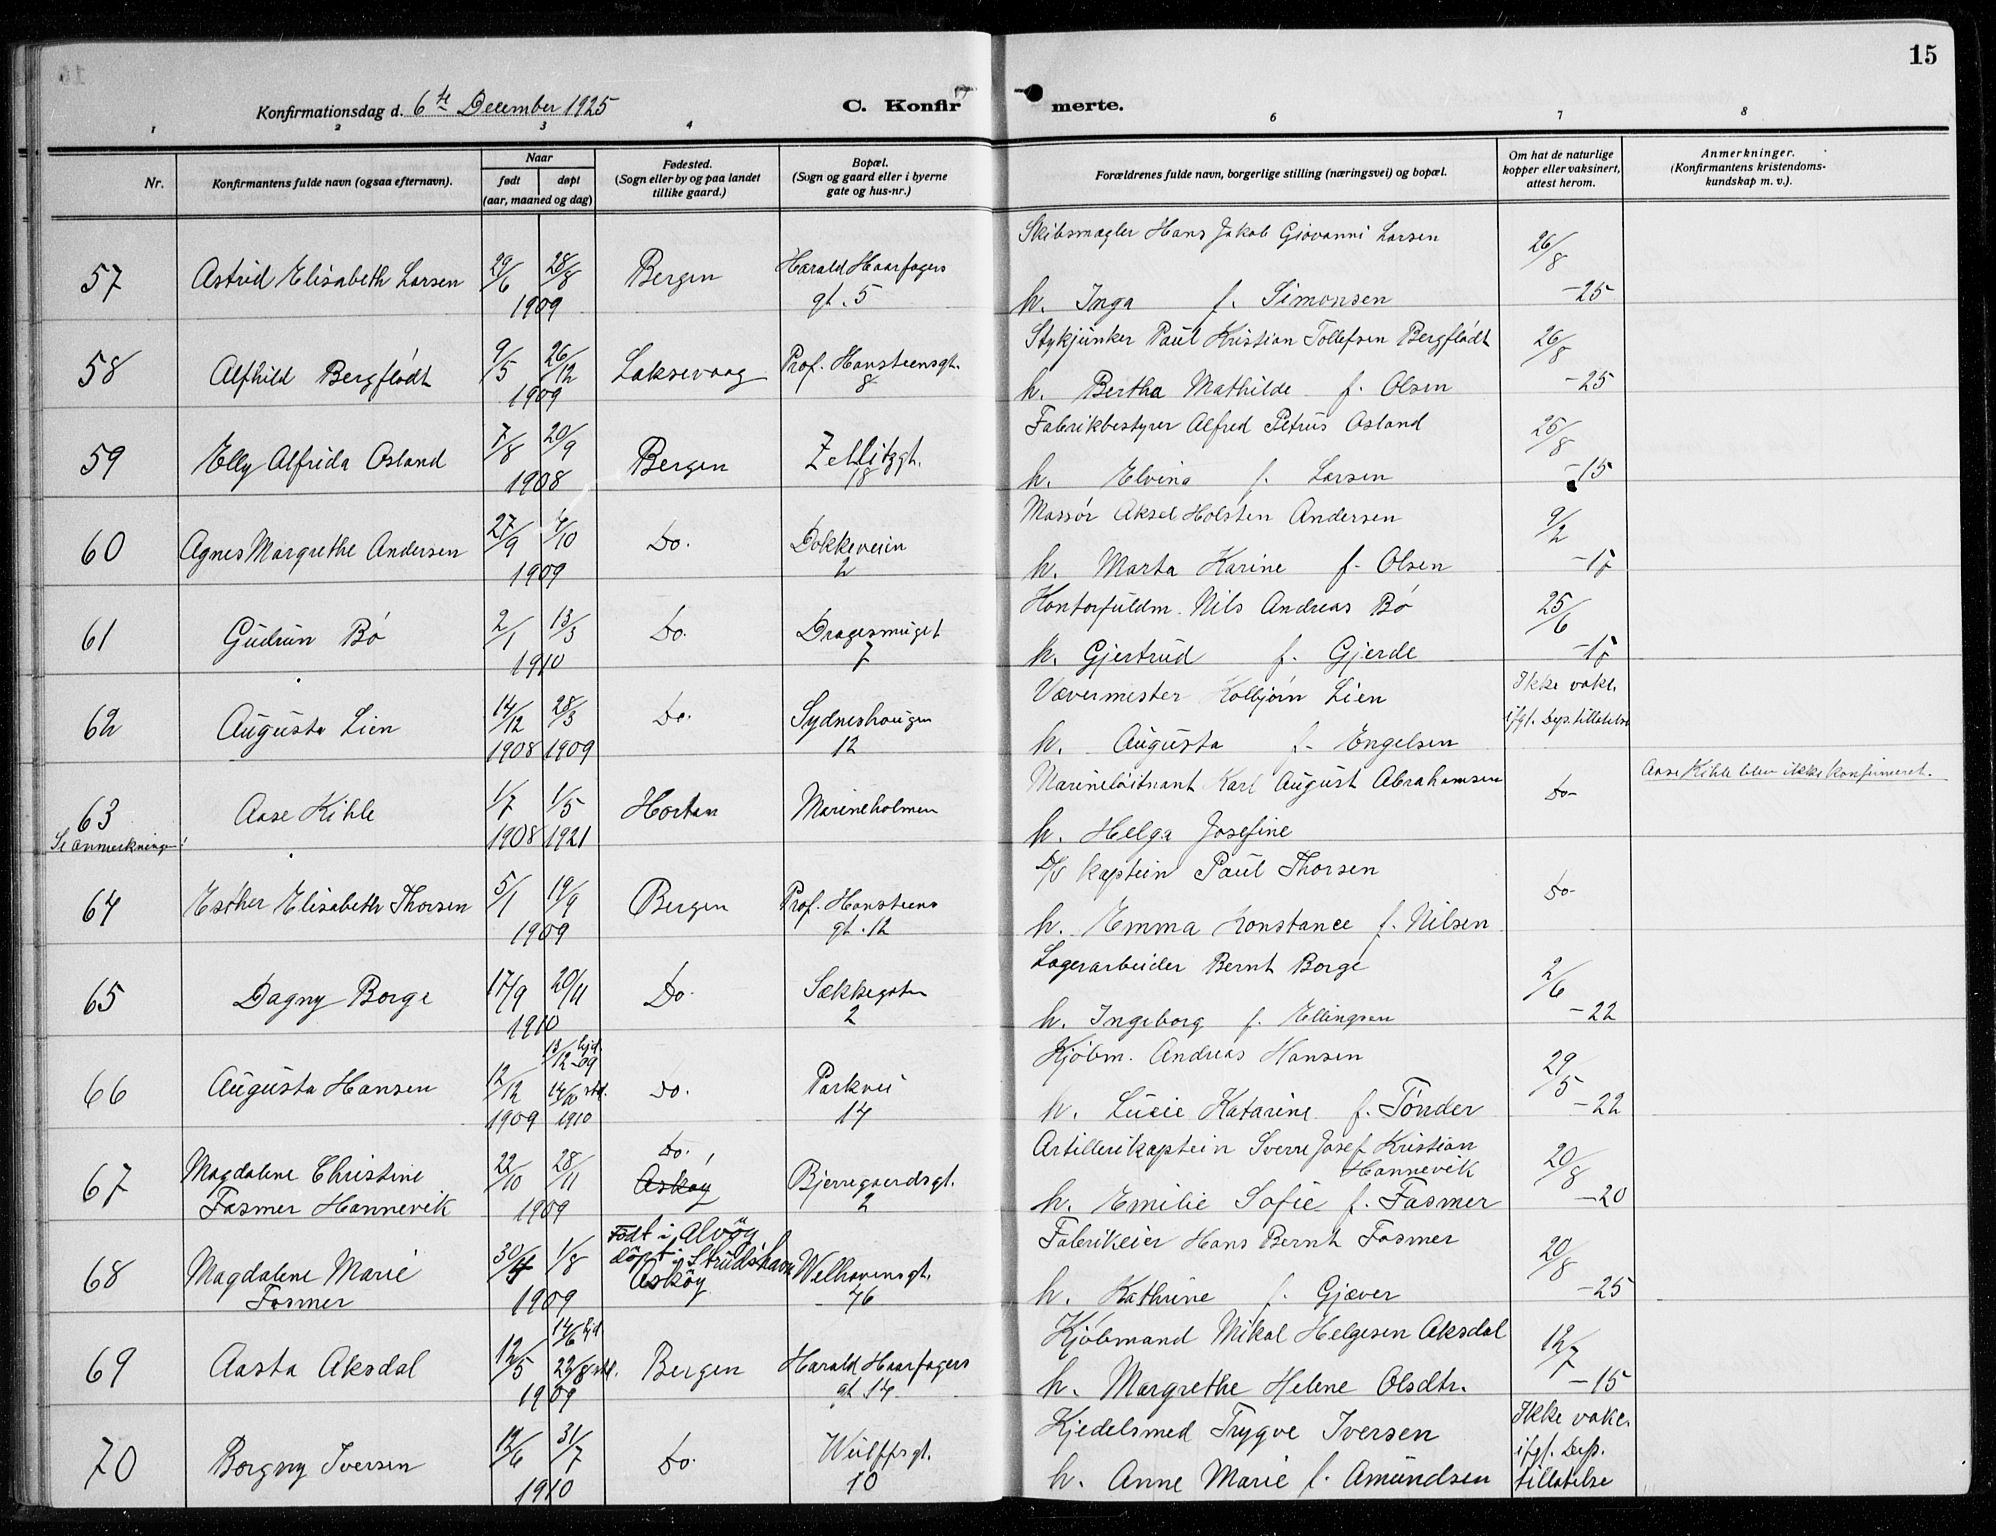 15
Konfirmationsdag d. 6te December 1925
C. Konfirmerte.
1 2 3 4 6 7 8
Nr.
Konfirmantens fulde navn (ogsaa efternavn).
Naar
født døpt
(aar, maaned og dag)
Fødested.
(Sogn eller by og paa landet
tillike gaard.)
Bopæl.
(Sogn og gaard eller i byerne
gate og hus-nr.)
Forældrenes fulde navn, borgerlige stilling (næringsvei) og bopæl.
Om hat de naturlige
kopper eller vaksinert,
attest herom.
Anmerkninger.
(Konfirmantens kristendoms-
kundskap m. v.).
57 Astrid Elisabeth Larsen 29/6 28/8 1909 Bergen Harald Haarfagers gt. 5 Skibsmægler Hans Jakob Giovanni Larsen 26/8
h. Inga f. Simonsen -25
58 Alfhild Bergflødt 9/5 26/12 1909 Laksevaag Prof. Hansteensgt. 8 Stykjunker Paul Kristian Tollefsen Bergflødt 26/8
h. Bertha Mathilde f. Olsen -25
59 Elly Alfrida Osland 7/8 20/9 1908 Bergen Zetlitzgt. 18 Fabrikbestyrer Alfred Petrus Osland 25/8
h. Elvina f. Larsen -15
60 Agnes Margrethe Andersen 27/9 7/10 1909 Do. Dokkeveien 2 Massør Aksel Holsten Andersen 9/2
h. Marta Karine f. Olsen -15
61 Gudrun Bø 2/1 13/3 1910 Do. Dragesmuget 7 Kontorfuldm. Nils Andreas Bø 25/6
h. Gjertrud f. Gjerde -15
62 Augusta Lien 14/12 1908 28/3 1909 Do. Sydneshaugen 12 Vævermester Kolbjørn Lien Ikke vakc.
h. Augusta f. Engelsen ifgl. Dsp. tillatelse
63 Aase Kihle 1/7 1908 1/5 1921 Horten Marineholmen Marineløitnant Karl August Abrahamsen Do- Aase Kihle blev ikke konfirmeret.
Se anmerkningen! h. Helga Josefine
64 Esther Elisabeth Thorsen 5/1 19/9 1909 Bergen Prof. Hansteens gt. 12 D/S kaptein Paul Thorsen Do-
h. Emma Konstance f. Nilsen
65 Dagny Borge 17/9 20/11 1910 Do. Sækkegaten 2 Lagerarbeider Bernt Borge 2/6
h. Ingeborg f. Ellingsen -22
66 Augusta Hansen 12/12 1909 13/12 hjd. -09 14/10 std. 1910 Do. Parkvei 14 Kjøbm. Andreas Hansen 29/5
h. Lucie Katarine f. Tønder -22
67 Magdalene Christine Fasmer Hannevik 22/10 28/11 1909 Do. Askøy Bjerregaardsgt. 2 Artillerikaptein Sverre Josef Kristian Hannevik 20/8
h. Emilie Sofie f. Fasmer -20
68 Magdalene Marie Fasmer 30/4 1/8 1909 Født i Alvøy døpt i Strudshavn Askøy Welhavensgt. 76 Fabrikeier Hans Bernt Fasmer 20/8
h. Kathrine f. Gjæver -25
69 Aasta Aksdal 12/5 14/6 hjd. 22/8 std. 1909 Bergen Harald Haarfagers gt. 14 Kjøbmand Mikal Helgesen Aksdal 12/7
h. Margrethe Helene Olsdtr. -15
70 Borgny Iversen 12/6 31/7 1910 Do. Wulffsgt. 10 Kjedelsmed Trygve Iversen Ikke vakc.
h. Anne Marie f. Amundsen ifgl. Dsp. tillatelse